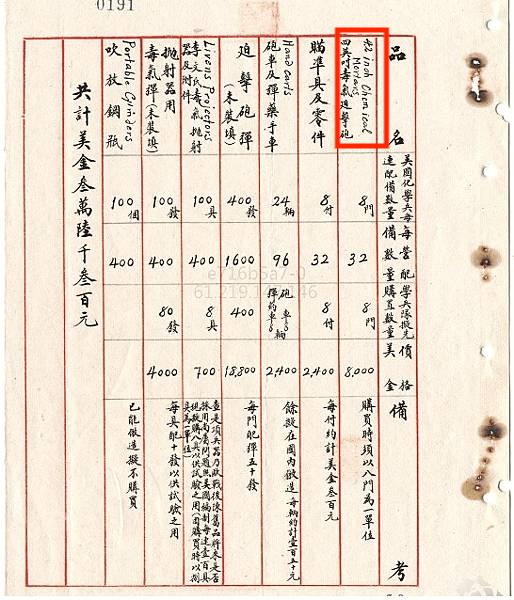 0191
品名
美國化學兵每連配備數量
每營配備數量
學兵隊擬先購置數量
價格美金
備考
4.2 inch Chemical Mortars
四英吋毒氣迫擊砲
8門
32
8門
8,000
購買時須以八門為一單位
瞄準具及零件
8付
32
8付
2,400
每付約計美金叁百元
Hand carts
砲車及彈藥手車
24輛
96
砲車8輛
彈藥車8輛
2,400
餘擬在國內倣造每輛約計壹百五十元
迫擊砲彈(未裝填)
400發
1600
400
18,800
每門配彈五十發
Livens Projectors
李文氏毒氣拋射器及附件
100具
400
8具
700
查是項兵器乃歐戰後陳舊品將來是否採用尚屬問題照美國編制每連壹百具現擬購八具以供試驗之用(函購買時以捌具為一單位)
拋射器用毒氣彈(未裝填)
100發
400
80發
4000
每具配十發以供試驗之用
Portable Cylinders
吹放鋼瓶
100個
400
已能倣造擬不購買
共計美金叁萬陸千叁百元
e716b5a7-0
61.219.146